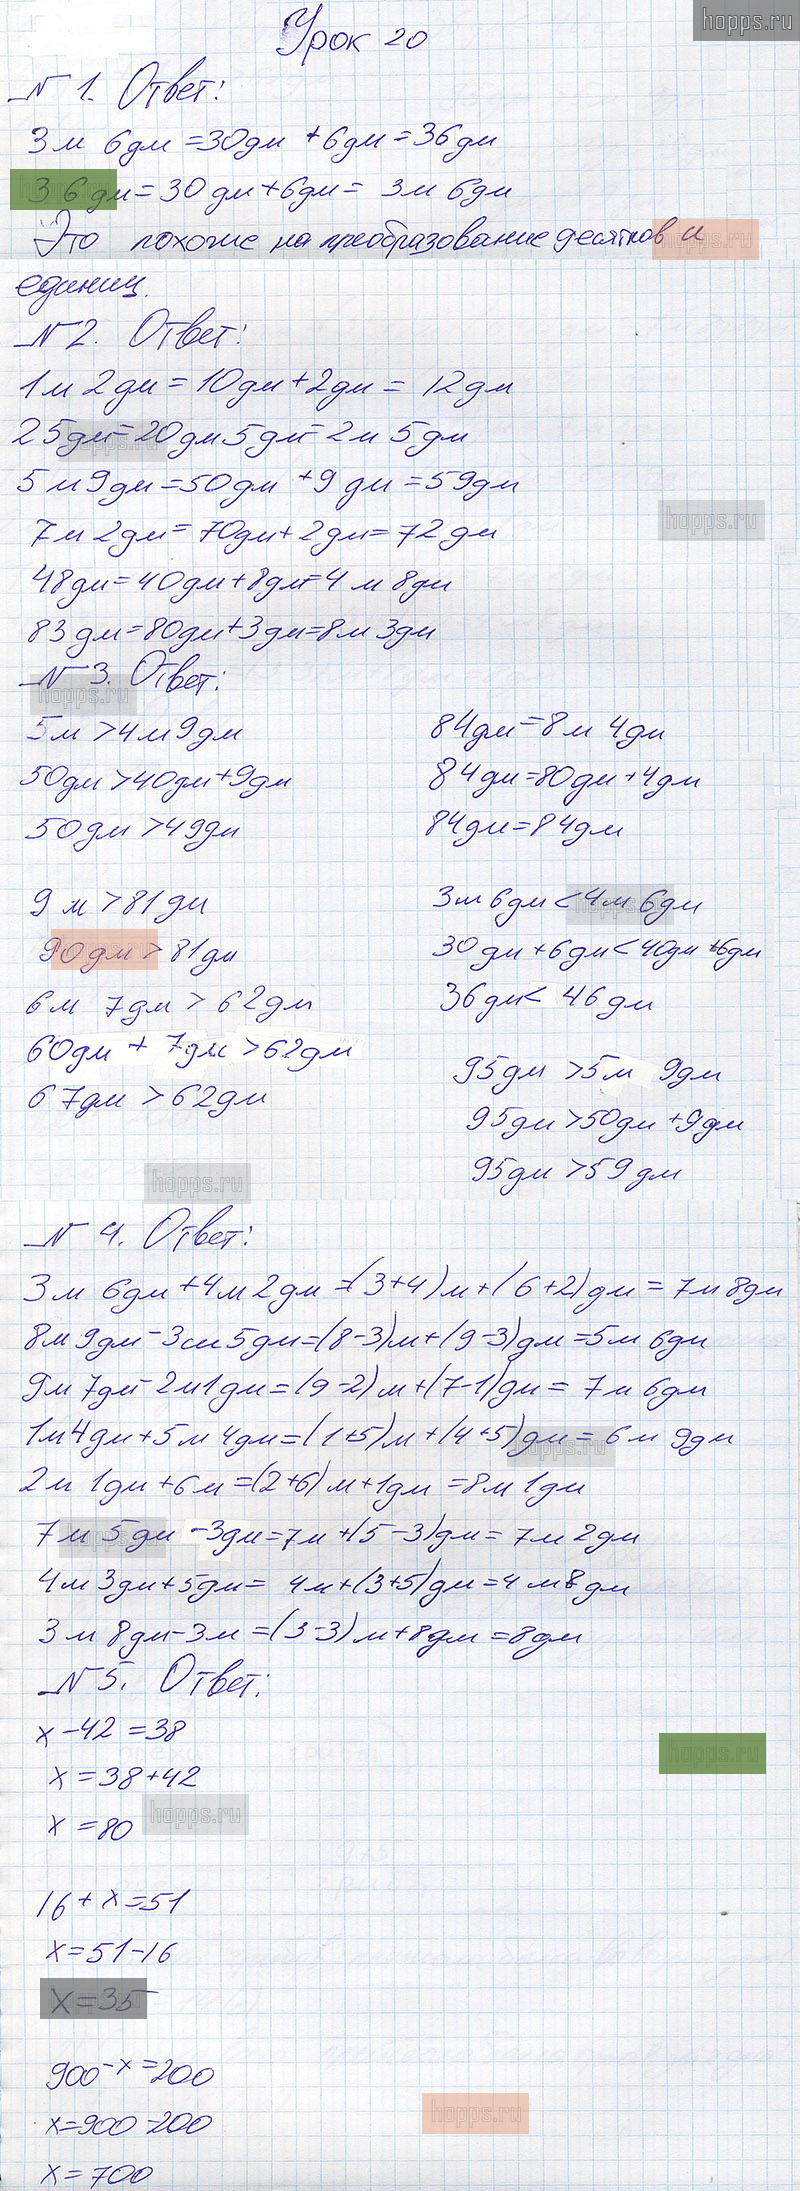 hopps.ru
Урок 20
№ 1. Ответ:
3м 6дм = 30дм + 6дм = 36дм
36дм = 30дм + 6дм = 3м 6дм
Это похоже на преобразование десятков и
единиц.
№ 2. Ответ:
1м 2дм = 10дм + 2дм = 12дм
25дм = 20дм 5дм = 2м 5дм
5м 9дм = 50дм + 9дм = 59дм
hopps.ru
7м 2дм = 70дм + 2дм = 72дм
48дм = 40дм + 8дм = 4м 8дм
83дм = 80дм + 3дм = 8м 3дм
№ 3. Ответ:
hopps.ru
5м > 4м 9дм
50дм > 40дм + 9дм
50дм > 49дм
84дм = 8м 4дм
84дм = 80дм + 4дм
84дм = 84дм
9м > 81дм
90дм > 81дм
6м 7дм > 62дм
60дм + 7дм > 62дм
67дм > 62дм
3м 6дм < 4м 6дм
30дм + 6дм < 40дм + 6дм
36дм < 46дм
95дм > 5м 9дм
95дм > 50дм + 9дм
95дм > 59дм
hopps.ru
№ 4. Ответ:
3м 6дм + 4м 2дм = (3+4)м + (6+2)дм = 7м 8дм
8м 9дм - 3см 5дм = (8-3)м + (9-3)дм = 5м 6дм
9м 7дм - 2м 1дм = (9-2)м + (7-1)дм = 7м 6дм
1м 4дм + 5м 4дм = (1+5)м + (4+5)дм = 6м 9дм
2м 1дм + 6м = (2+6)м + 1дм = 8м 1дм
7м 5дм - 3дм = 7м + (5-3)дм = 7м 2дм
4м 3дм + 5дм = 4м + (3+5)дм = 4м 8дм
3м 8дм - 3м = (3-3)м + 8дм = 8дм
№ 5. Ответ:
x - 42 = 38
hopps.ru
x = 38 + 42
x = 80
hopps.ru
16 + x = 51
x = 51 - 16
x = 35
900 - x = 200
x = 900 - 200
hopps.ru
x = 700